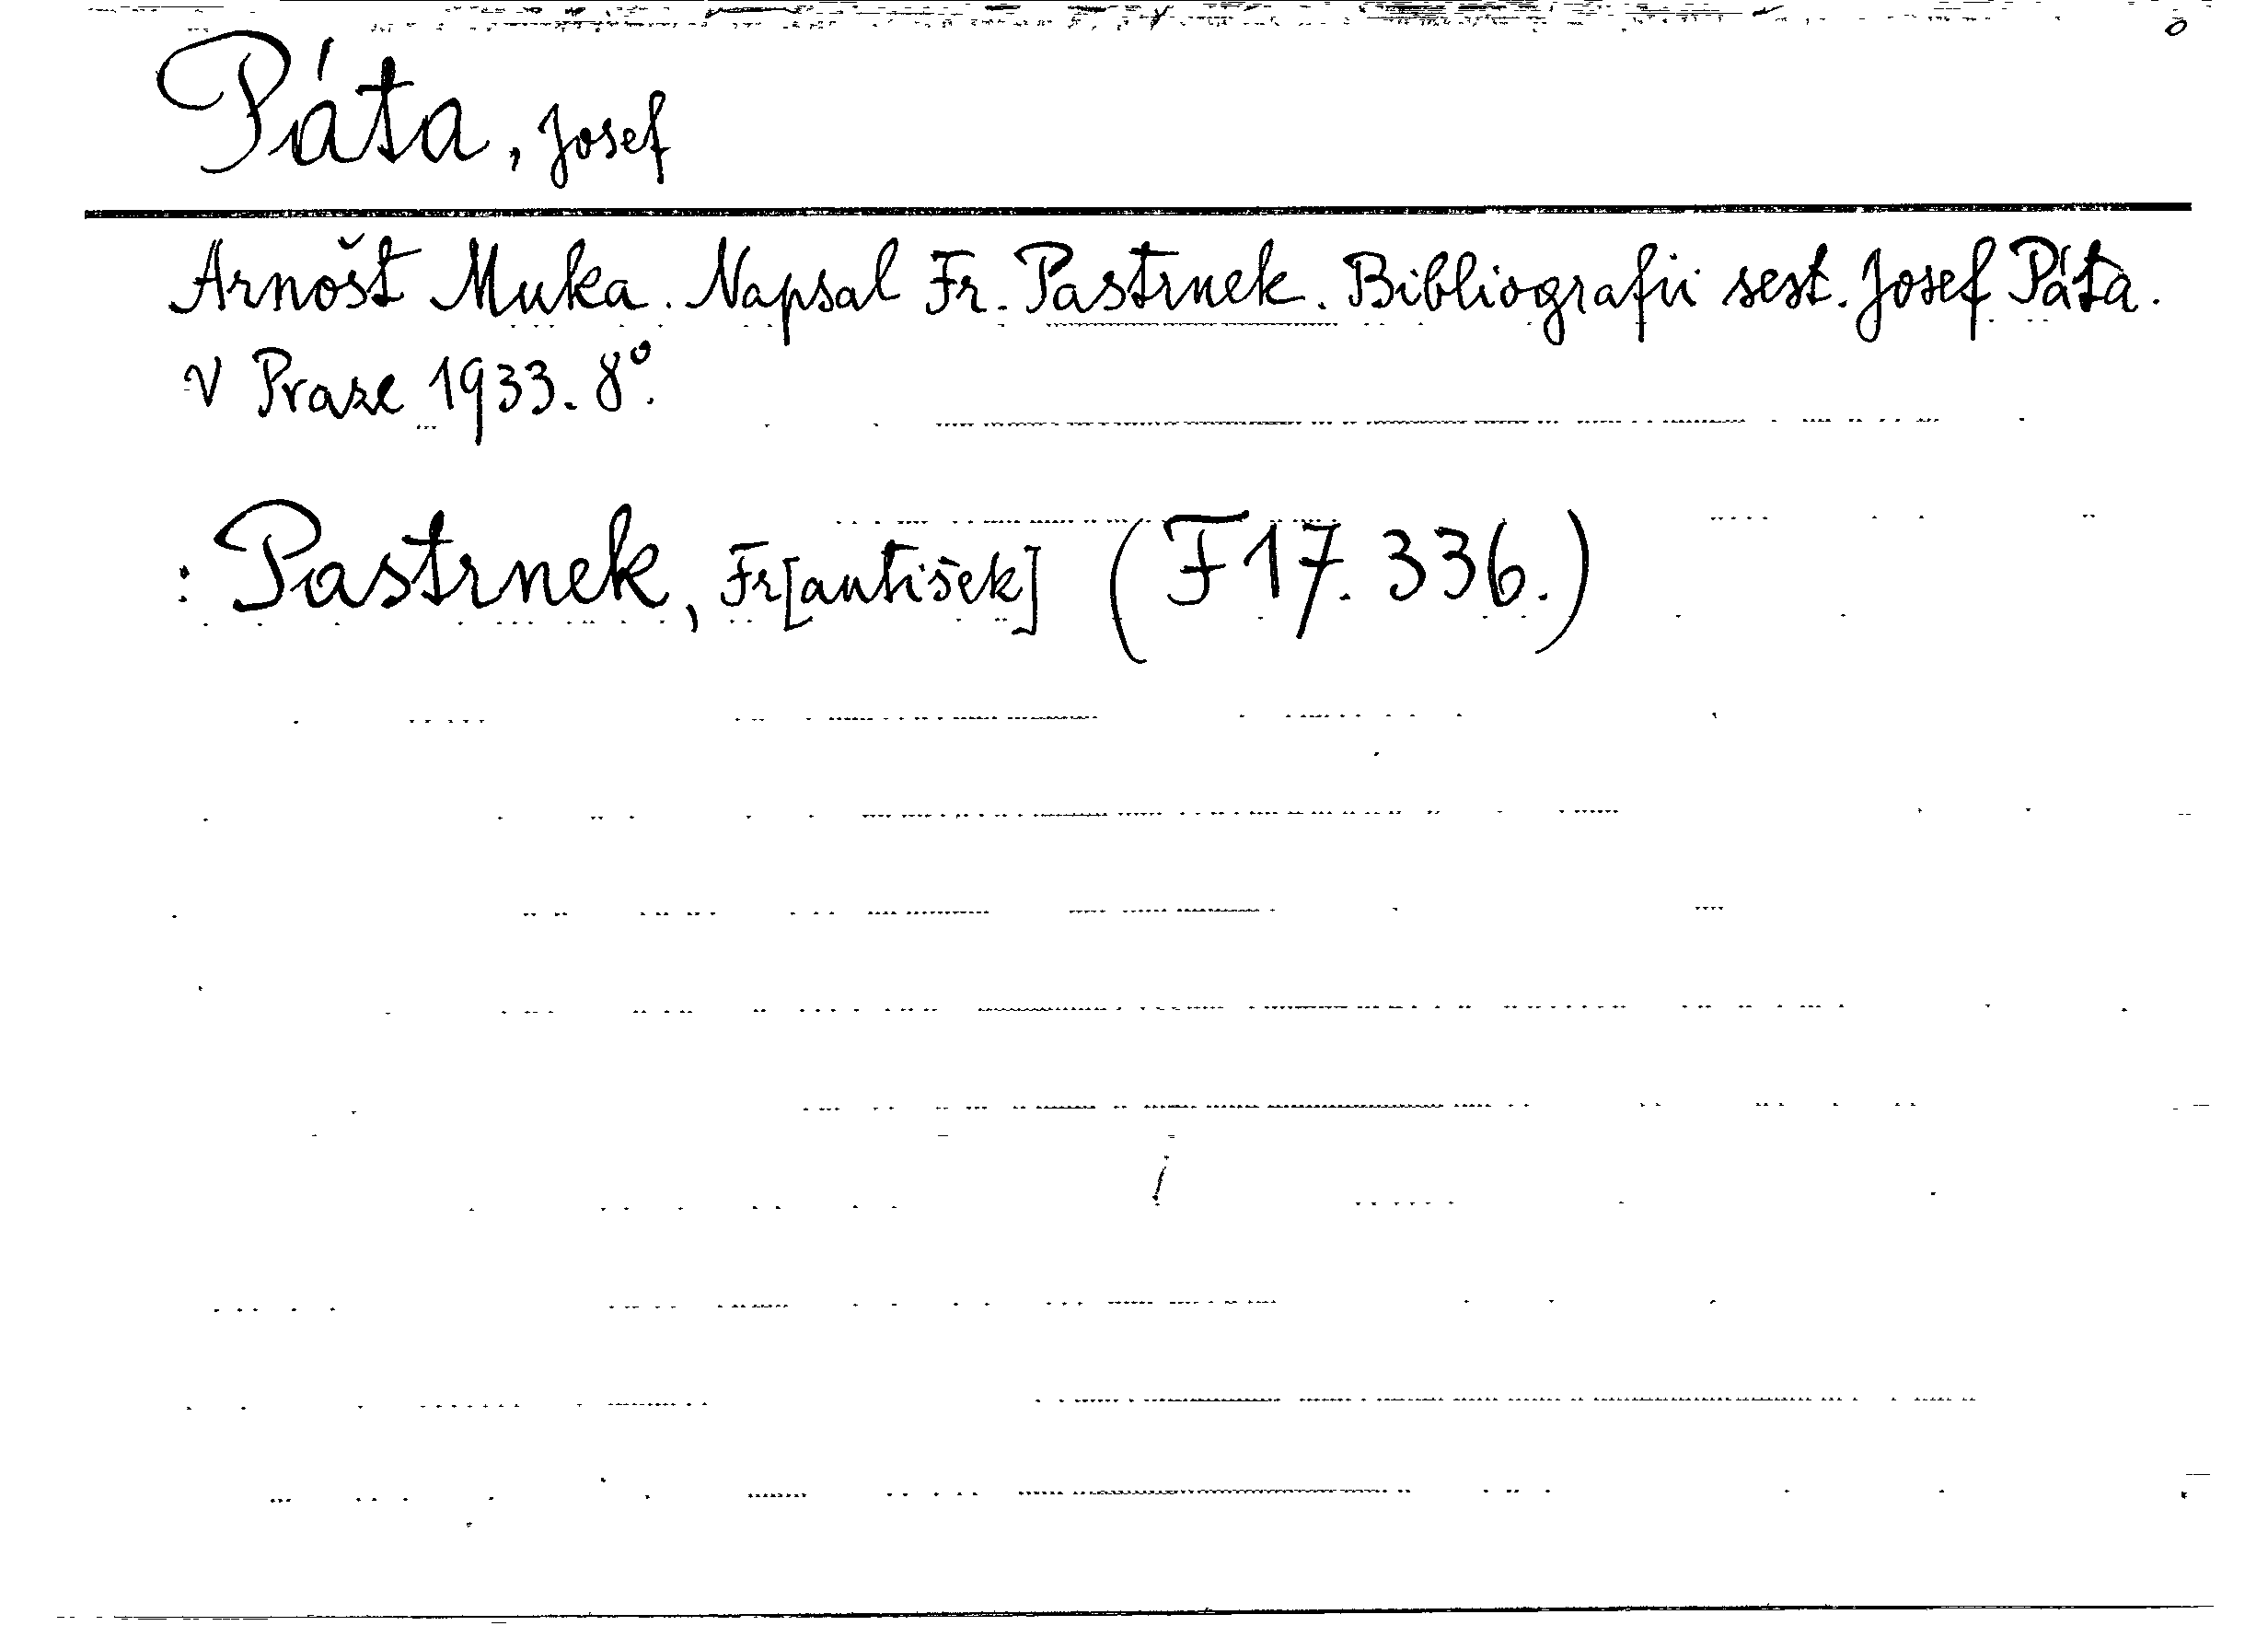 Páta, Josef
Arnošt Muka. Napsal Fr. Pastrnek. Bibliografii sest. Josef Páta.
V Praze 1933. 8°.
: Pastrnek, Fr[antišek] (F 17. 336.)